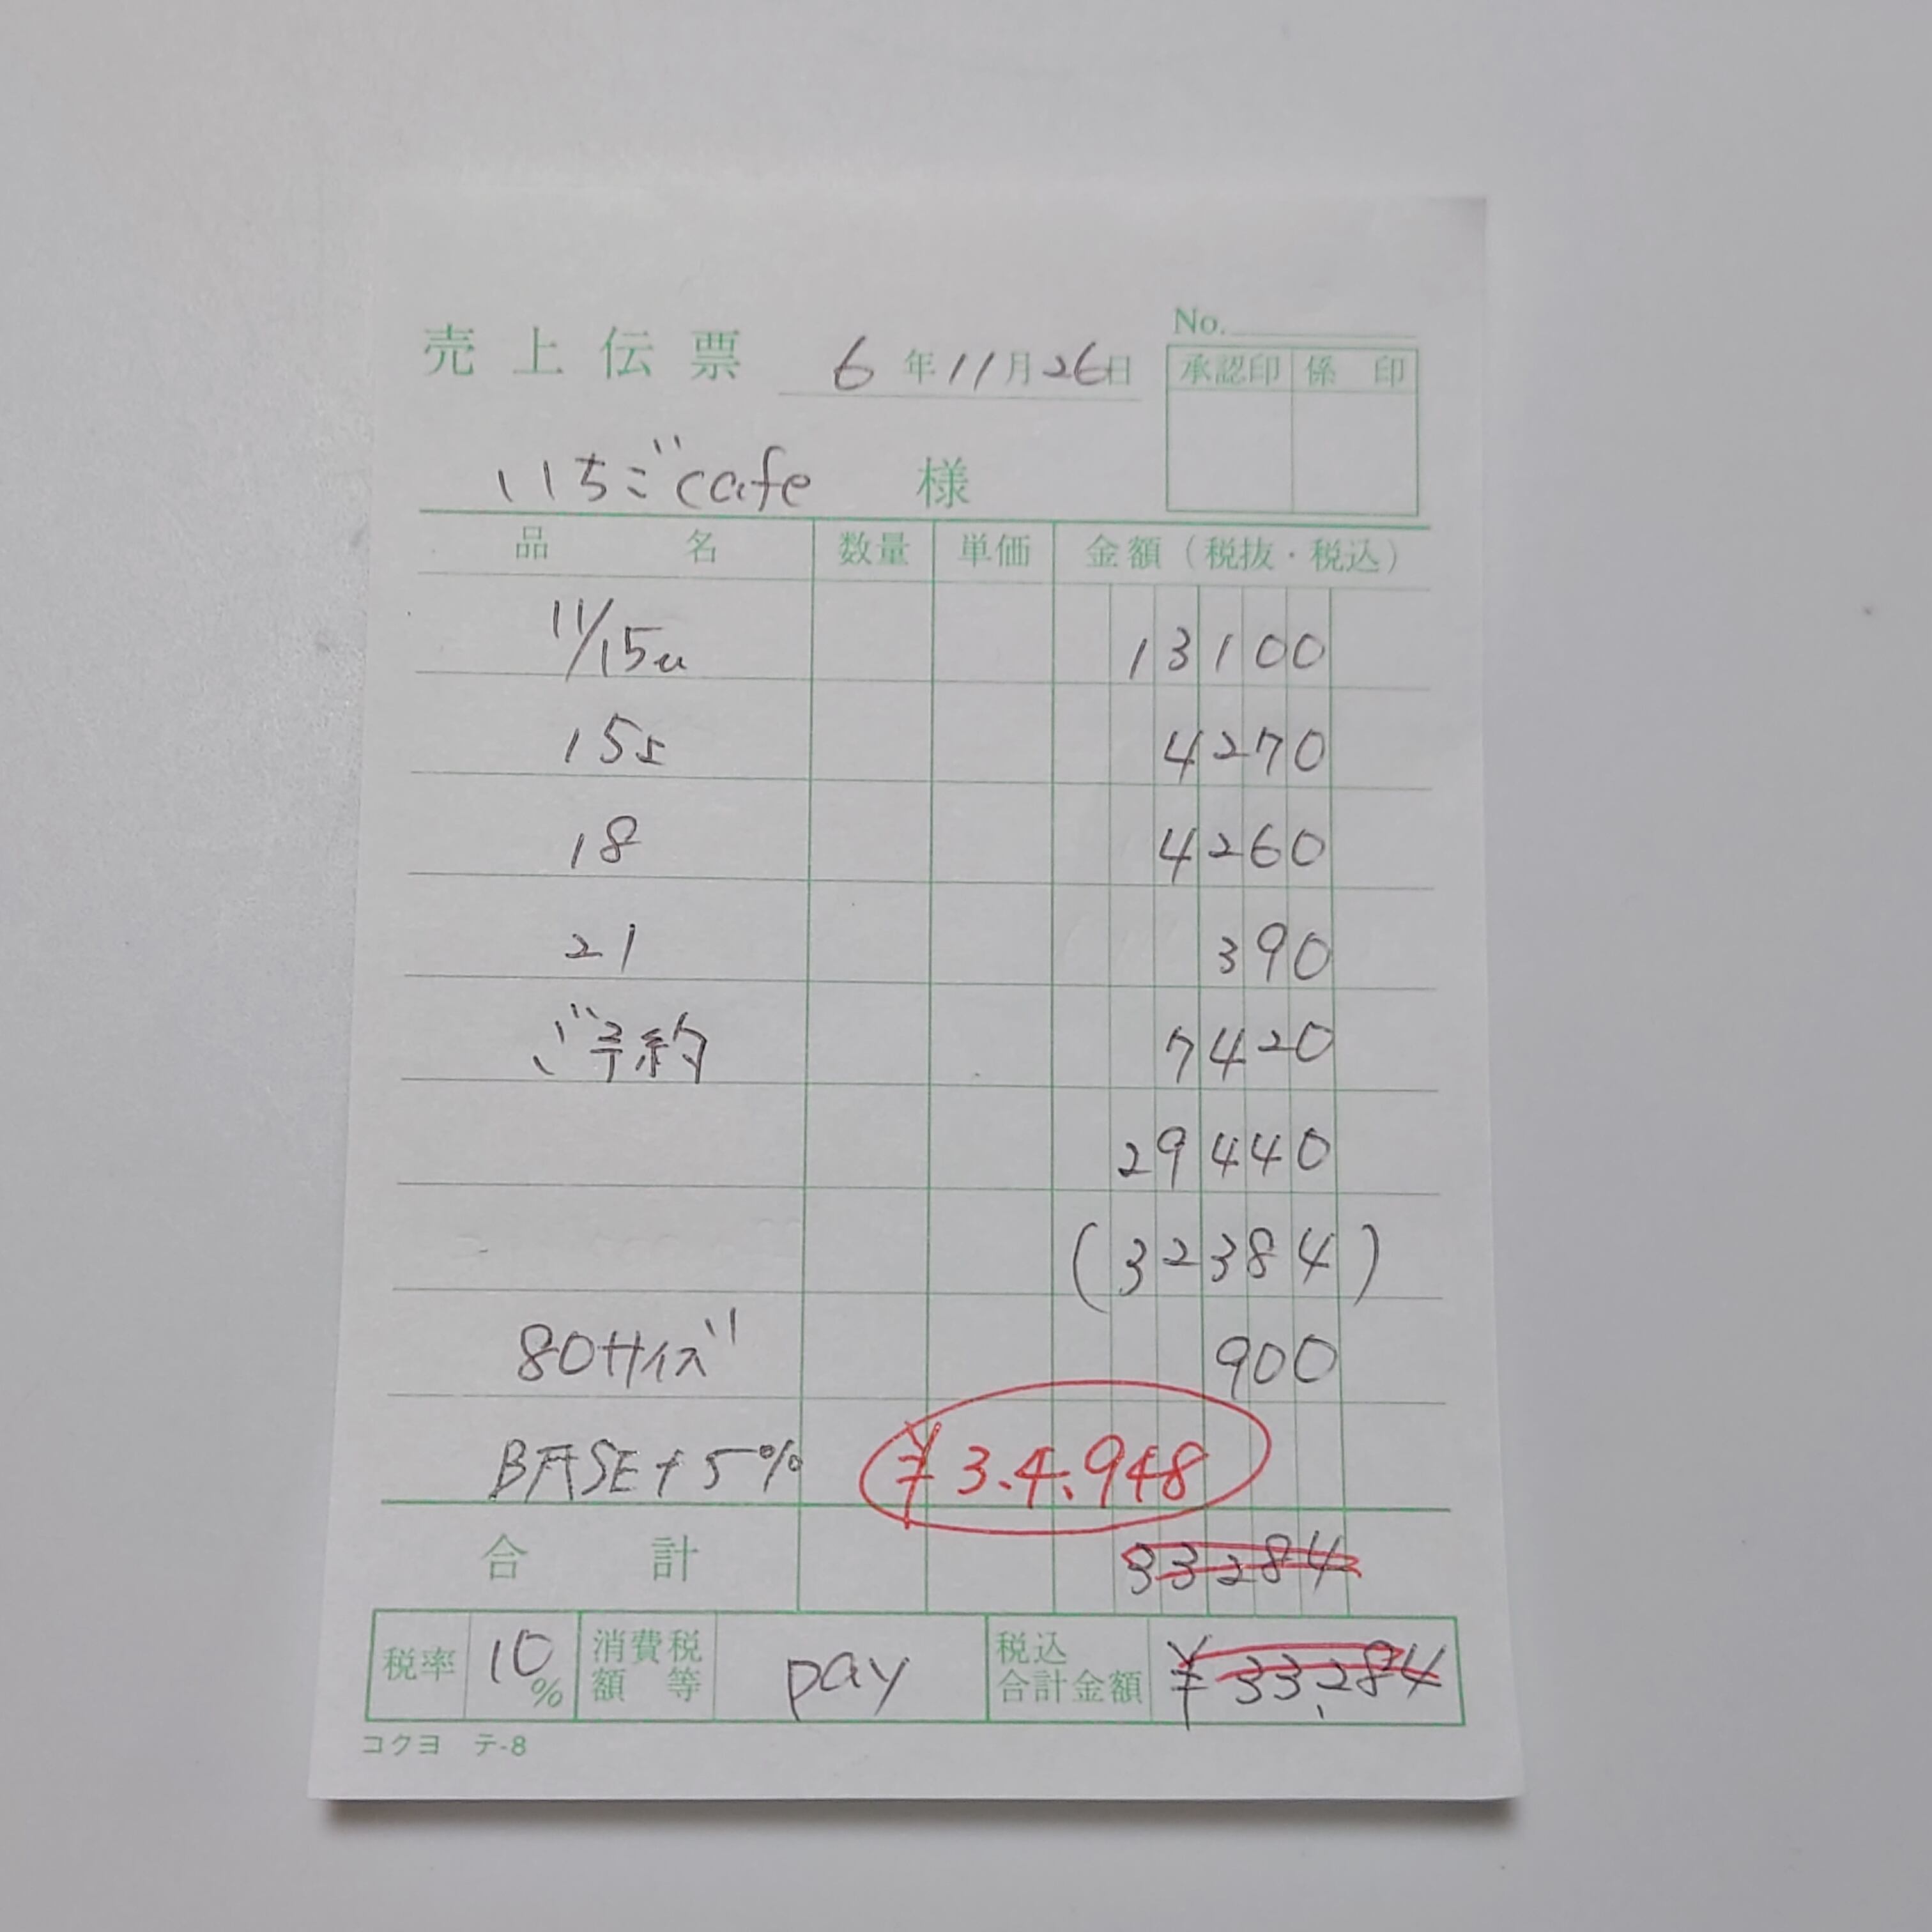 No.
売上伝票 6年11月26日
承認印 係印
いちごcafe 様
品名 数量 単価 金額(税抜・税込)
11/15u 13100
15s 4270
18 4260
21 390
ご予約 7420
29440
(32384)
80サイズ 900
BASE+5% ¥3.4.948
合計 33284
税率 10% 消費税額等 pay 税込合計金額 ¥33,284
コクヨ テ-8